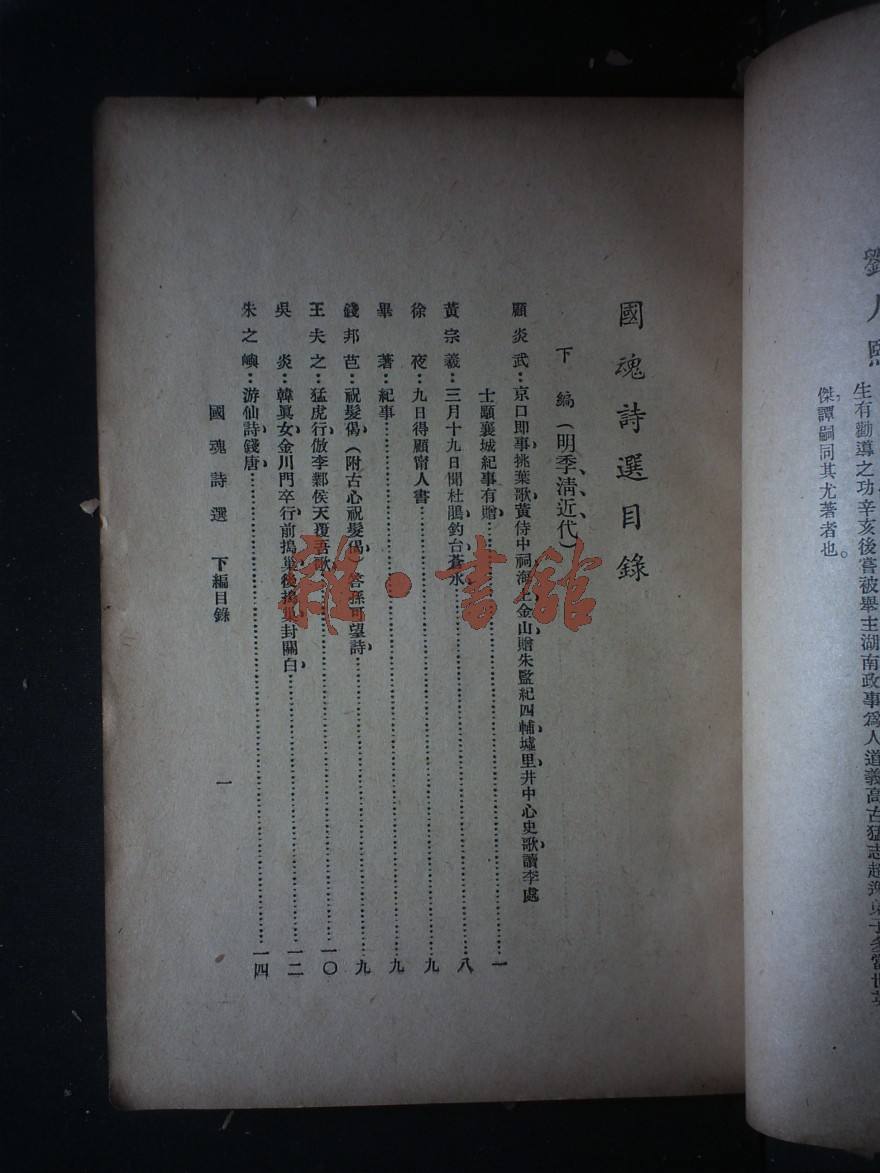 劉人熙
生有勸導之功辛亥後嘗被舉主湖南政事爲人道義高古猛志超
傑、譚嗣同其尤著者也。
國魂詩選目錄
下編(明季、清、近代、)
顧炎武：京口即事、挑葉歌、黃侍中祠、海上、金山、贈朱監紀四輔、墟里、井中心史歌、讀李處
士顒襄城紀事有贈、一
黃宗羲：三月十九日聞杜鵑、釣台、蒼水、八
徐夜：九日得顧甯人書九
畢著：紀事九
錢邦芑：祝髮偈、(附古心祝髮偈)答孫可望詩、九
王夫之：猛虎行、倣李鄴侯天覆吾歌、一〇
吳炎：韓眞女、金川門卒行、前搗巢、後搗巢、封關白、一二
朱之嶼：游仙詩、錢唐、一四
國魂詩選 下編目錄 一
雜·書館